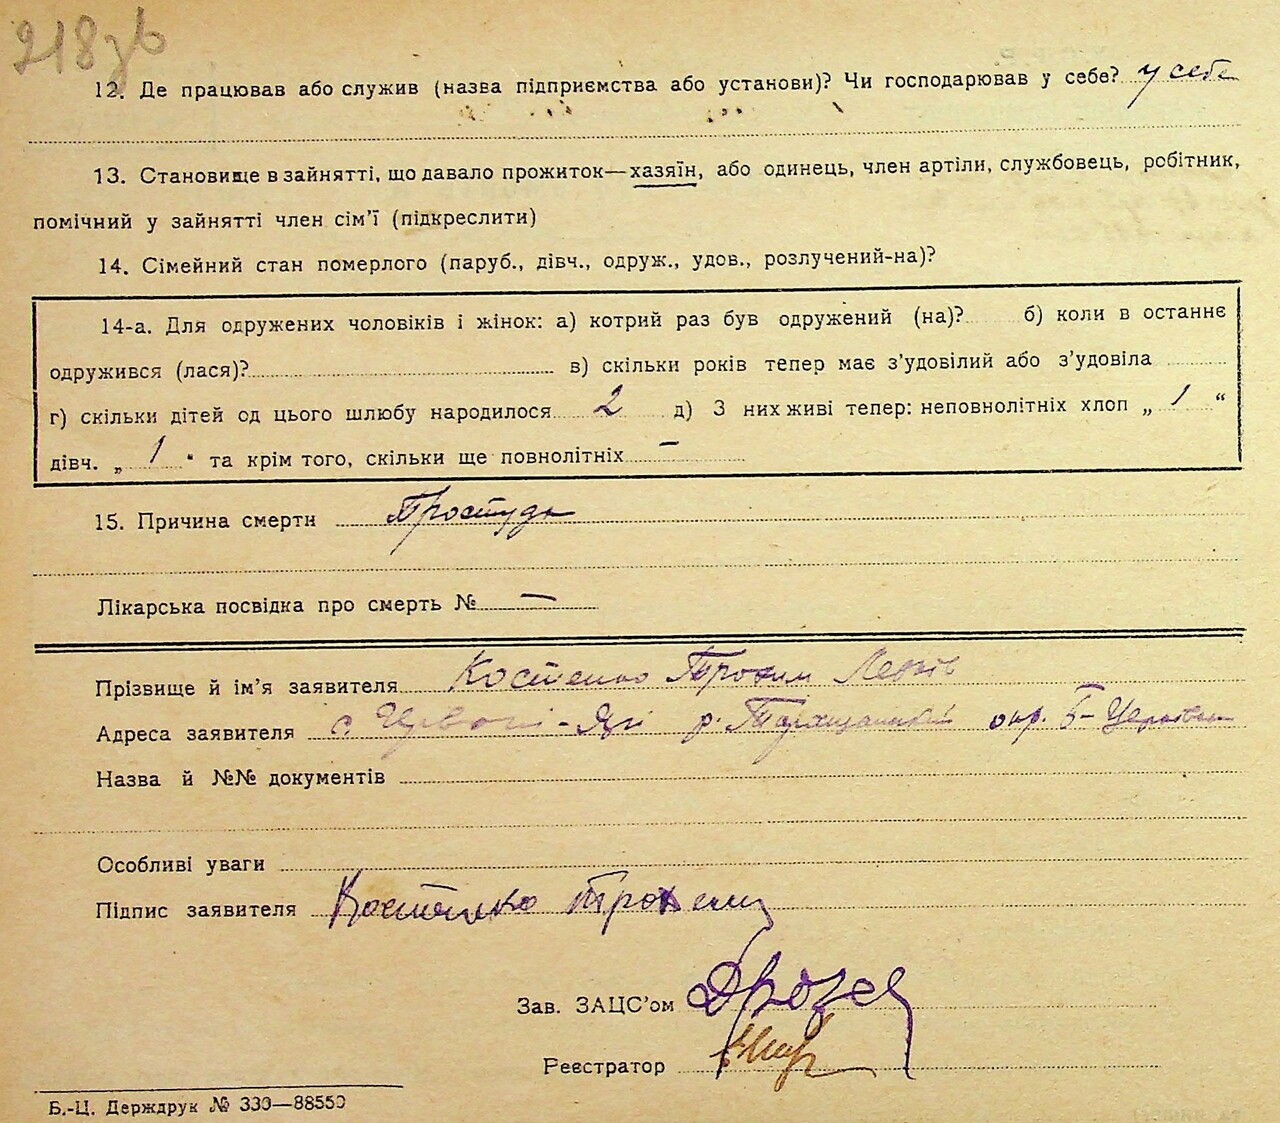 218зв
12. Де працював або служив (назва підприємства або установи)? Чи господарював у себе? у себе
13. Становище в зайнятті, що давало прожиток—хазяїн, або одинець, член артіли, службовець, робітник,
помічний у зайнятті член сім'ї (підкреслити)
14. Сімейний стан померлого (паруб., дівч., одруж., удов., розлучений-на)?
14-а. Для одружених чоловіків і жінок: а) котрий раз був одружений (на)? б) коли в останнє
одружився (лася)? в) скільки років тепер має з'удовілий або з'удовіла
г) скільки дітей од цього шлюбу народилося 2 д) З них живі тепер: неповнолітніх хлоп „ 1 “
дівч. „ 1 “ та крім того, скільки ще повнолітніх —
15. Причина смерти Простуда
Лікарська посвідка про смерть № —
Прізвище й ім'я заявителя Костенко Трохим
Адреса заявителя с. Червоні-Яги р. Таращанський окр. Б-Церковськ
Назва й №№ документів
Особливі уваги
Підпис заявителя Костенко Трохим
Зав. ЗАЦС'ом
Реєстратор
Б.-Ц. Держдрук № 330—88550